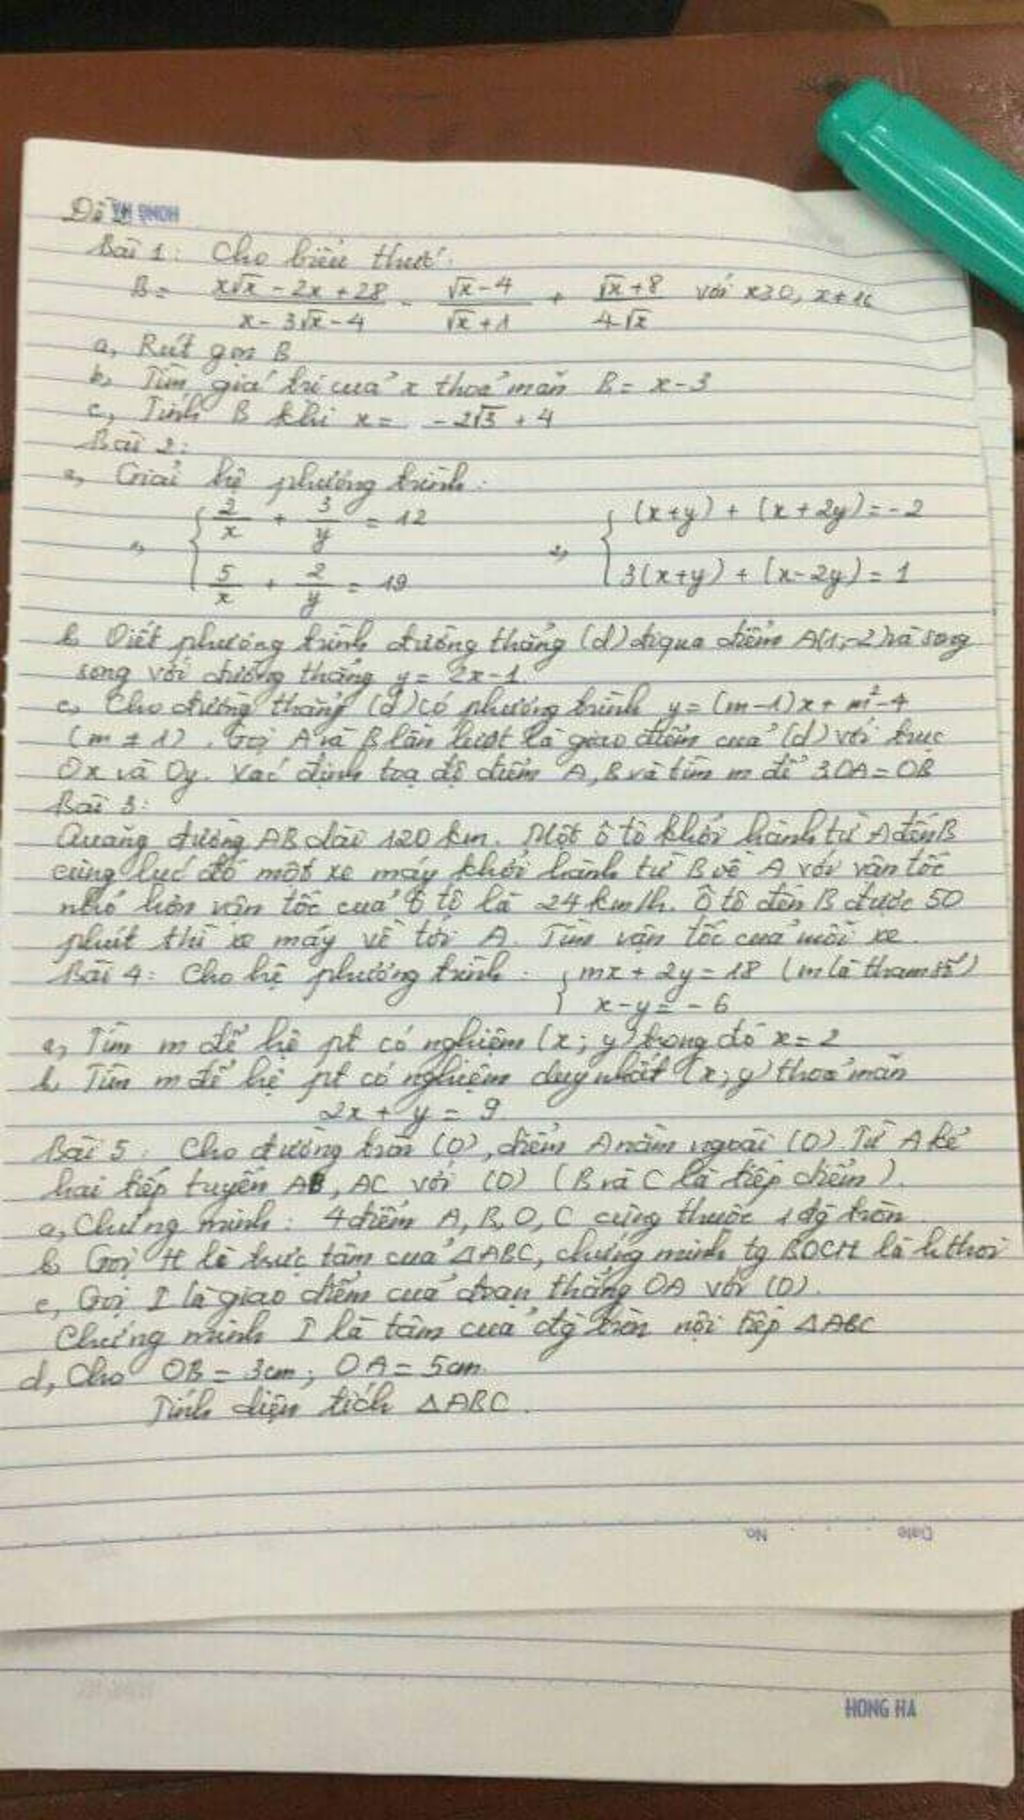 Đề 2
HONG HA
Bài 1: Cho biểu thức:
B = \frac{x√x - 2x + 28}{x - 3√x - 4} - \frac{√x - 4}{√x + 1} + \frac{√x + 8}{4 - √x} với x ≥ 0, x ≠ 16
a, Rút gọn B
b, Tìm giá trị của x thoả mãn B = x - 3
c, Tính B khi x = -2√3 + 4
Bài 2:
a, Giải hệ phương trình:
1, { \frac{2}{x} + \frac{3}{y} = 12
\frac{5}{x} + \frac{2}{y} = 19
2, { (x+y) + (x+2y) = -2
3(x+y) + (x-2y) = 1
b, Viết phương trình đường thẳng (d) đi qua điểm A(1;-2) và song
song với đường thẳng y = 2x - 1
c, Cho đường thẳng (d) có phương trình y = (m-1)x + m² - 4
(m ≠ 1). Gọi A và B lần lượt là giao điểm của (d) với trục
Ox và Oy. Xác định toạ độ điểm A, B và tìm m để 3OA = OB
Bài 3:
Quãng đường AB dài 120 km. Một ô tô khởi hành từ A đến B
cùng lúc đó một xe máy khởi hành từ B về A với vận tốc
nhỏ hơn vận tốc của ô tô là 24 km/h. Ô tô đến B được 50
phút thì xe máy về tới A. Tìm vận tốc của mỗi xe.
Bài 4: Cho hệ phương trình: { mx + 2y = 18 (m là tham số)
x - y = -6
a, Tìm m để hệ pt có nghiệm (x; y) trong đó x = 2
b, Tìm m để hệ pt có nghiệm duy nhất (x; y) thoả mãn
2x + y = 9
Bài 5: Cho đường tròn (O), điểm A nằm ngoài (O). Từ A kẻ
hai tiếp tuyến AB, AC với (O) (B và C là tiếp điểm).
a, Chứng minh: 4 điểm A, B, O, C cùng thuộc 1 đg tròn
b, Gọi H là trực tâm của △ABC, chứng minh tg BOCH là h thoi
c, Gọi I là giao điểm của đoạn thẳng OA với (O).
Chứng minh I là tâm của đg tròn nội tiếp △ABC
d, Cho OB = 3cm; OA = 5cm.
Tính diện tích △ABC.
Date
No.
HONG HA